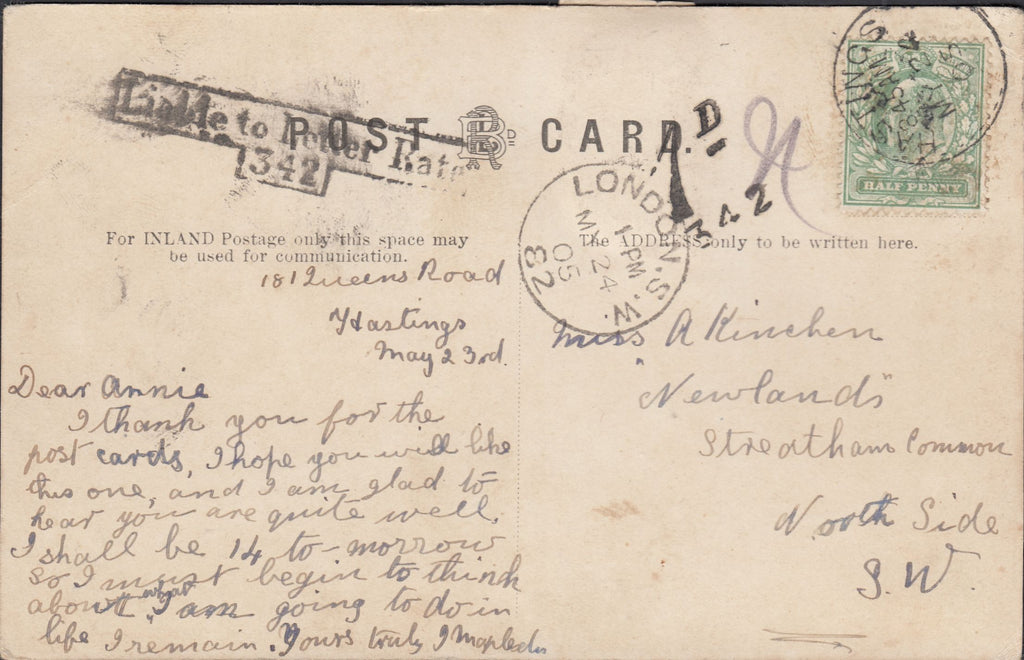 Liable to Letter Rate
342
POST CARD.
1D.
342
HALF PENNY
HASTINGS
LONDON.S.W.
1-PM
MY 24
05
82
For INLAND Postage only this space may
be used for communication.
The ADDRESS only to be written here.
181 Queens Road
Hastings
May 23rd.
Dear Annie
I thank you for the
post cards, I hope you will like
this one, and I am glad to
hear you are quite well.
I shall be 14 to-morrow
so I must begin to think
about what I am going to do in
life I remain. Yours truly, I
Miss A Kinchen
"Newlands"
Streatham Common
North Side
S.W.